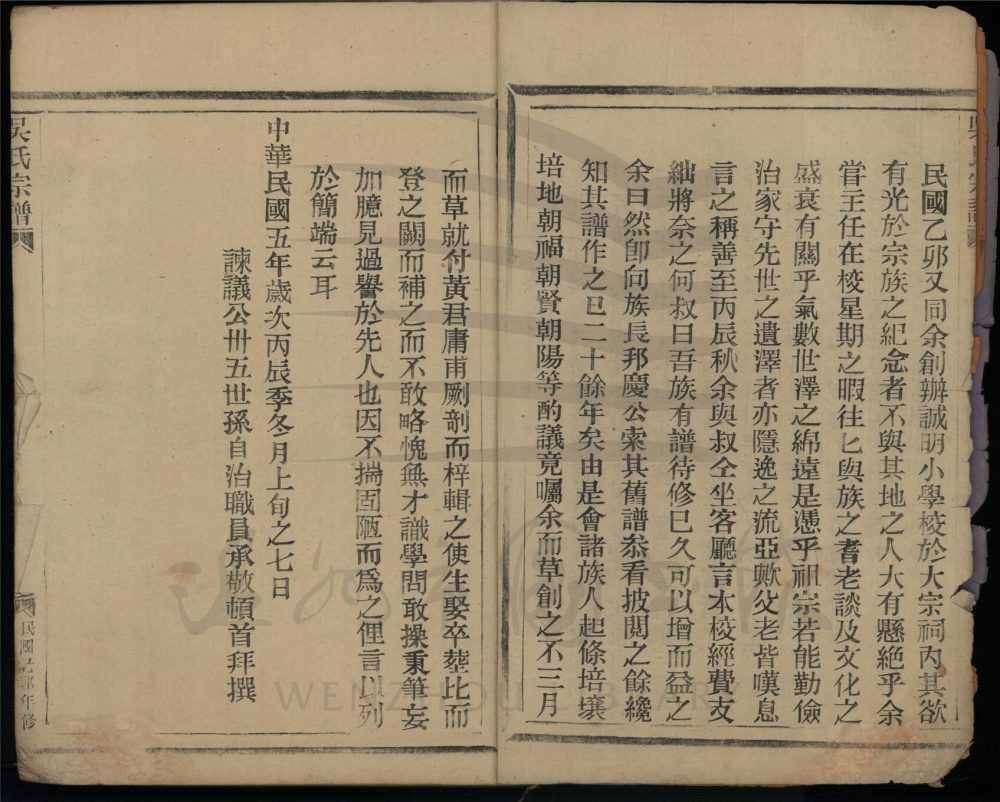 民國乙卯又同余創辦誠明小學校於大宗祠內其欲
有光於宗族之紀念者不與其地之人大有懸絶乎余
嘗主任在校星期之暇往匕與族之耆老談及文化之
盛衰有關乎氣數世澤之綿遠是憑乎祖宗若能勤儉
治家守先世之遺澤者亦隱逸之流亞歟父老皆嘆息
言之稱善至丙辰秋余與叔仝坐客廳言本校經費支
絀將奈之何叔曰吾族有譜待修已久可以增而益之
余曰然卽向族長邦慶公索其舊譜叅看披閱之餘纔
知其譜作之已二十餘年矣由是會諸族人起條培壤
培地朝福朝賢朝陽等酌議竟囑余而草創之不三月
而草就付黃君庸甫劂剖而梓輯之使生娶卒塟比而
登之闕而補之而不敢略愧無才識學問敢操秉筆妄
加臆見過譽於先人也因不揣固陋而爲之俚言以列
於簡端云耳
中華民國五年歲次丙辰季冬月上旬之七日
諫議公卅五世孫自治職員承敬頓首拜撰
吳氏宗譜
民國 年修
WENZHOU LIBRARY